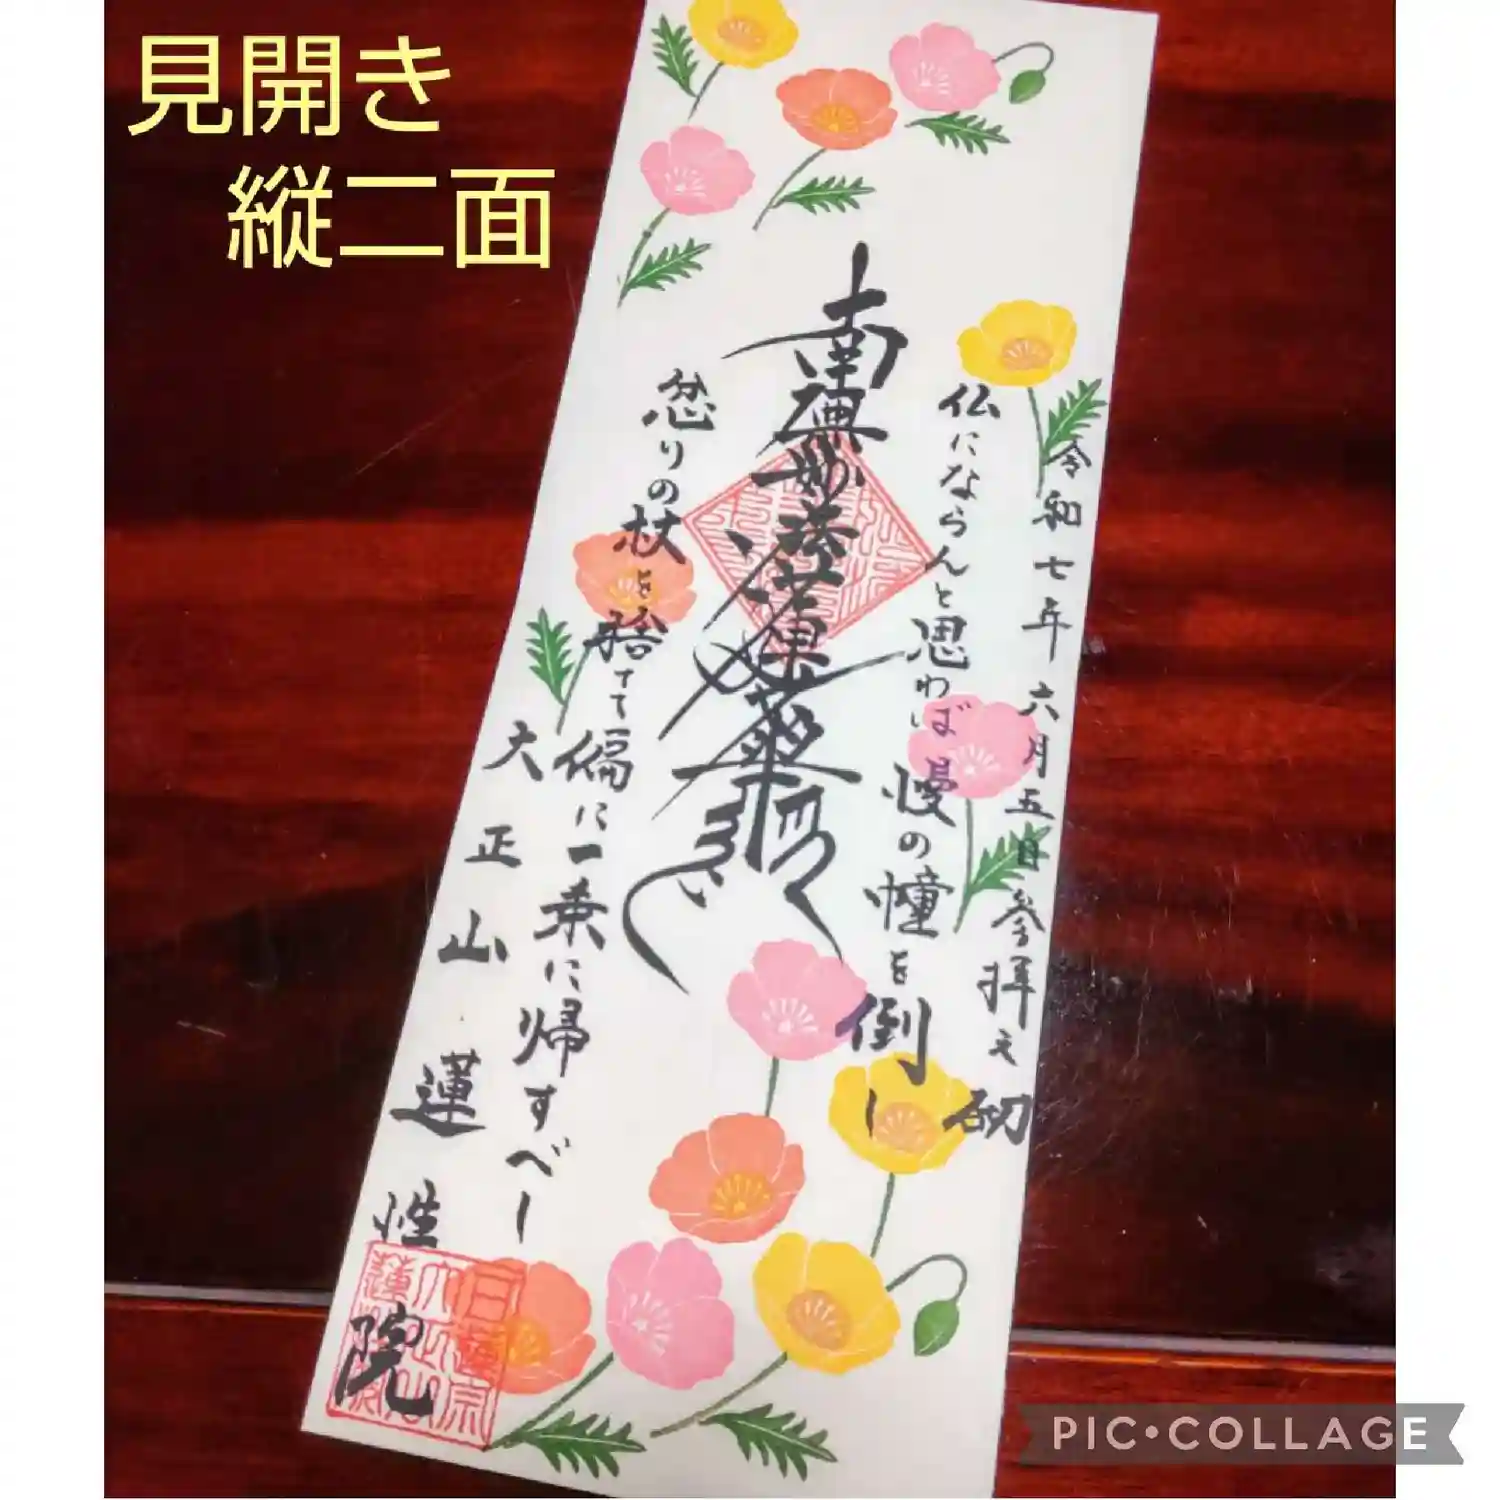 見開き
縦二面
令和七年六月五日参拝之砌
仏にならんと思わば慢の幢を倒し
南無妙法蓮華経
忿りの杖を捨てて偏に一乗に帰すべし
大正山蓮性院
日蓮宗
大正山
PIC•COLLAGE